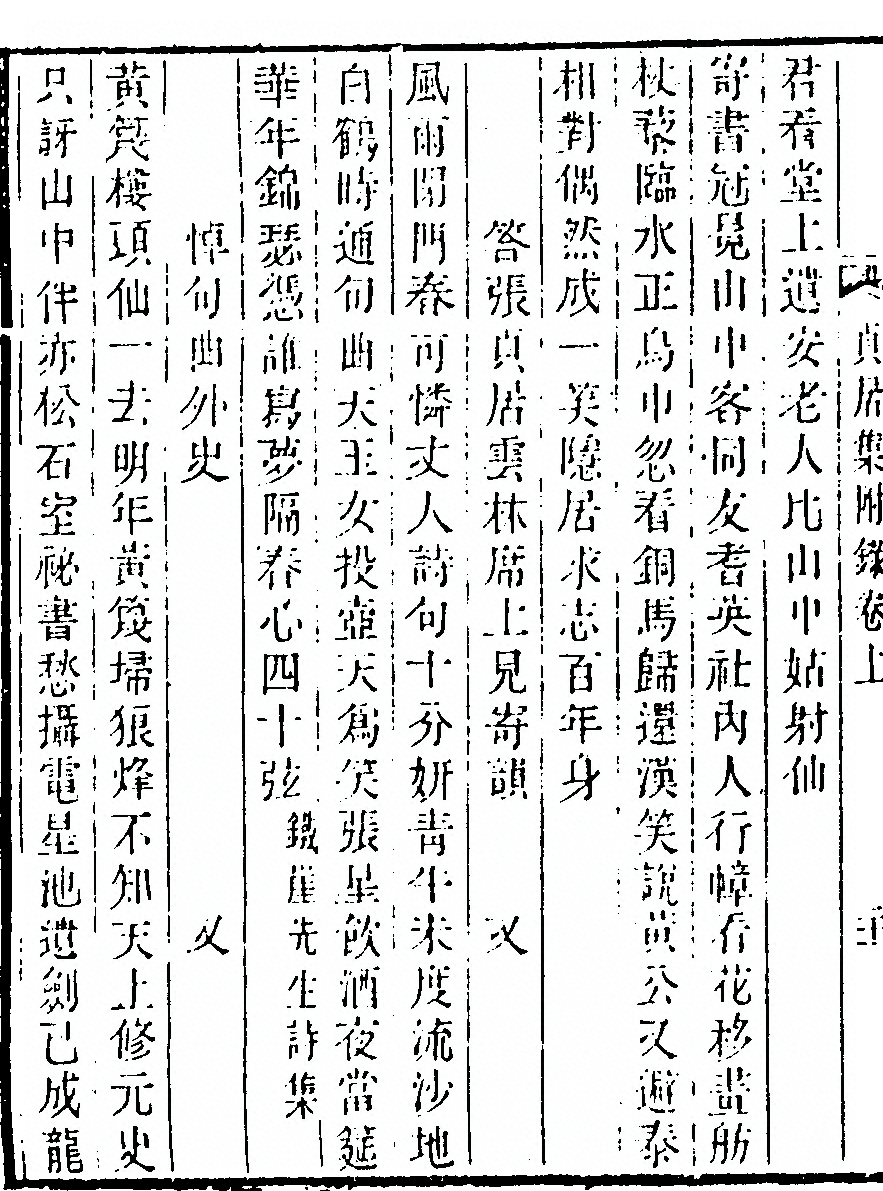 貞居集附錄卷上
君看堂上遺安老人比山中姑射仙
寄書冠覓山中客同友耆英社內人行幛看花移畫舫
杖藜臨水正烏巾忽看銅馬歸還漢笑說黃公又避秦
相對偶然成一笑隱居求志百年身
答張貞居雲林席上見寄韻 又
風雨閉門春可憐丈人詩句十分妍青牛未度流沙地
白鶴時通句曲天玉女投壺天爲笑張星飲酒夜當筵
華年錦瑟憑誰寫夢隔春心四十弦 鐵崖先生詩集
悼句曲外史 又
黃篾樓頭仙一去明年黃篾埽狼烽不知天上修元史
只訝山中伴赤松石室祕書愁攝電星池遺劍已成龍